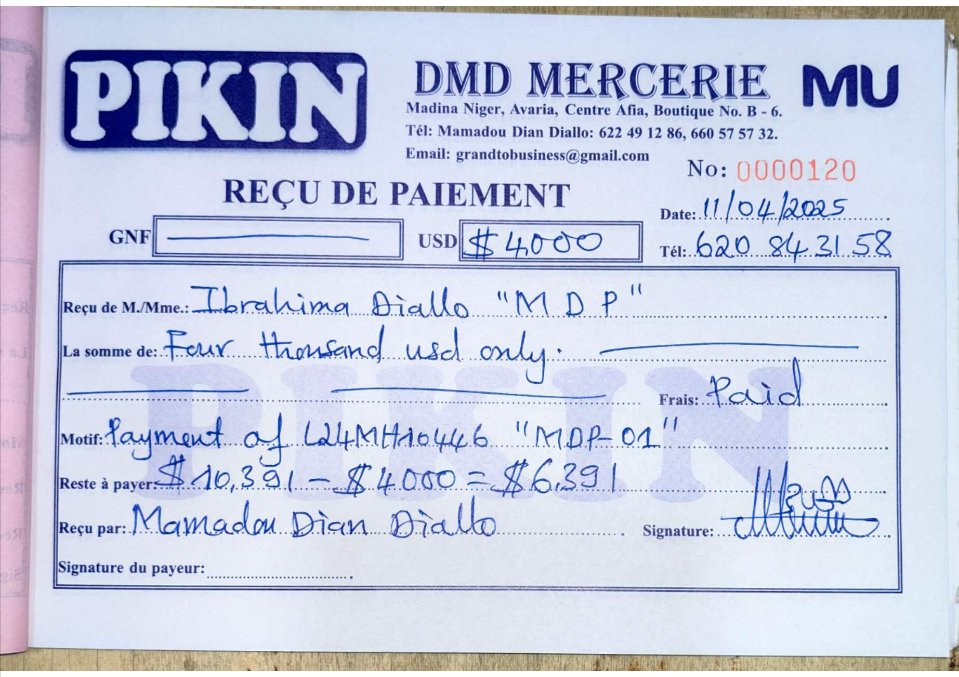 PIKIN
DMD MERCERIE
MU
Madina Niger, Avaria, Centre Afia, Boutique No. B - 6.
Tél: Mamadou Dian Diallo: 622 49 12 86, 660 57 57 32.
Email: grandtobusiness@gmail.com
No: 0000120
REÇU DE PAIEMENT
Date: 11/04/2025
GNF
USD $ 4000
Tél: 620 84 31 58
Reçu de M./Mme.: Ibrahima Diallo "M D P"
La somme de: Four thousand usd only.
Frais: Paid
PIKIN
Motif: Payment of L24MH10446 "MDP-01"
Reste à payer: $ 10,391 - $ 4000 = $ 6,391
Reçu par: Mamadou Dian Diallo Signature:
Signature du payeur: